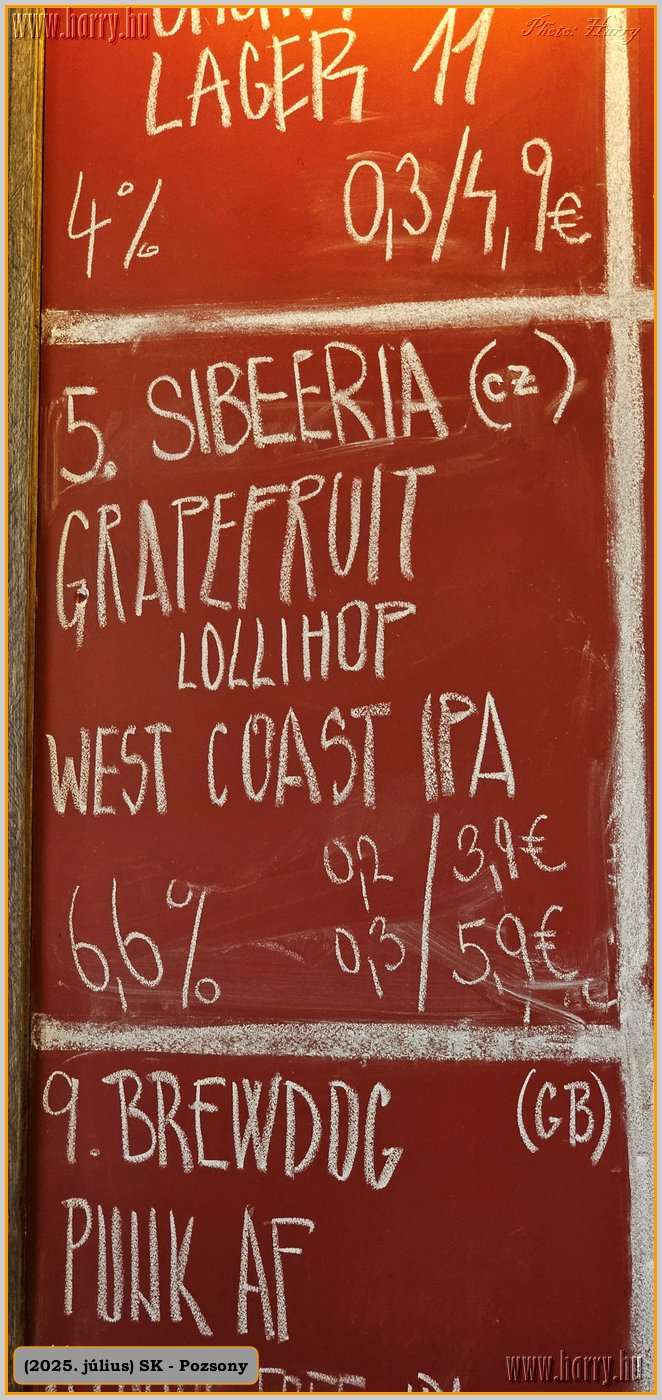 www.harry.hu
Photo: Harry
LAGER 11
4% 0,3/4,9€
5. SIBEERIA (CZ)
GRAPEFRUIT
LOLLIHOP
WEST COAST IPA
0,2 / 3,9€
6,6% 0,3 / 5,9€
9. BREWDOG (GB)
PUNK AF
(2025. július) SK - Pozsony
www.harry.hu